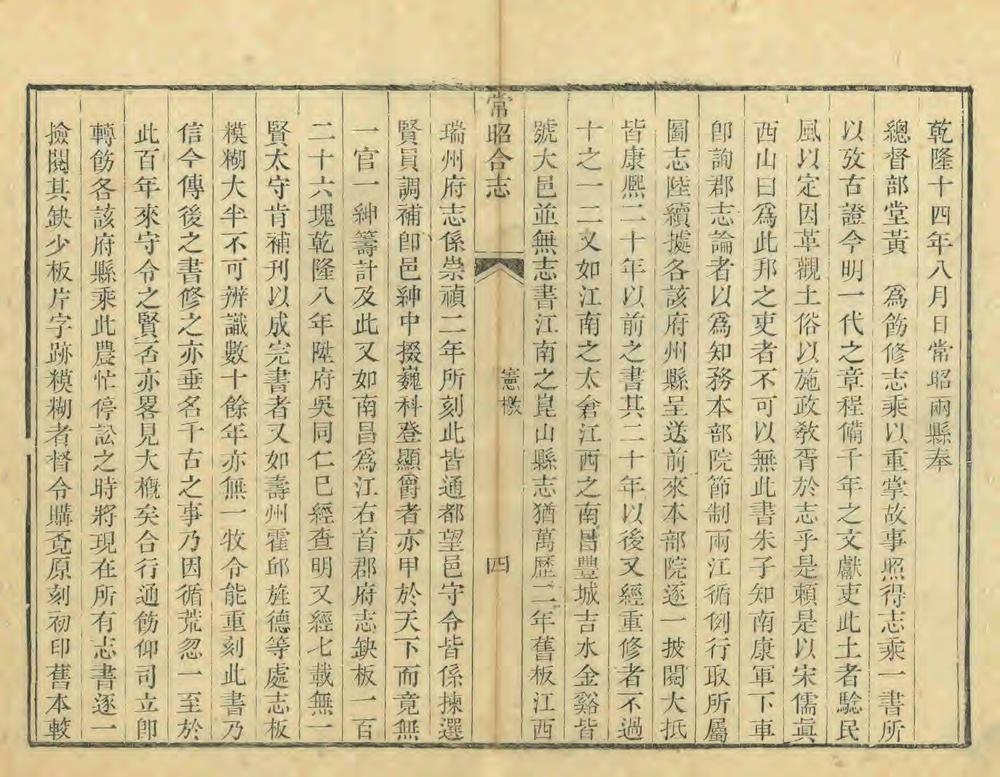 乾隆十四年八月日常昭兩縣奉
總督部堂黃　為飭修志乘以重掌故事照得志乘一書所
以攷古證今明一代之章程備千年之文獻吏此土者驗民
風以定因革觀土俗以施政敎胥於志乎是賴是以宋儒眞
西山曰爲此邦之吏者不可以無此書朱子知南康軍下車
卽詢郡志論者以爲知務本部院節制兩江循例行取所屬
圖志陸續據各該府州縣呈送前來本部院逐一披閱大抵
皆康熈二十年以前之書其二十年以後又經重修者不過
十之一二又如江南之太倉江西之南昌豐城吉水金谿皆
號大邑並無志書江南之崑山縣志猶萬歷二年舊板江西
常昭合志
憲檄
四
瑞州府志係崇禎二年所刻此皆通都望邑守令皆係揀選
賢員調補卽邑紳中掇巍科登顯爵者亦甲於天下而竟無
一官一紳籌計及此又如南昌爲江右首郡府志缺板一百
二十六塊乾隆八年陞府吳同仁巳經查明又經七載無一
賢太守肯補刊以成完書者又如壽州霍邱旌德等處志板
模糊大半不可辨識數十餘年亦無一牧令能重刻此書乃
信今傳後之書修之亦垂名千古之事乃因循荒忽一至於
此百年來守令之賢否亦畧見大槪矣合行通飭仰司立卽
轉飭各該府縣乘此農忙停訟之時將現在所有志書逐一
撿閱其缺少板片字跡糢糊者督令購覓原刻初印舊本較